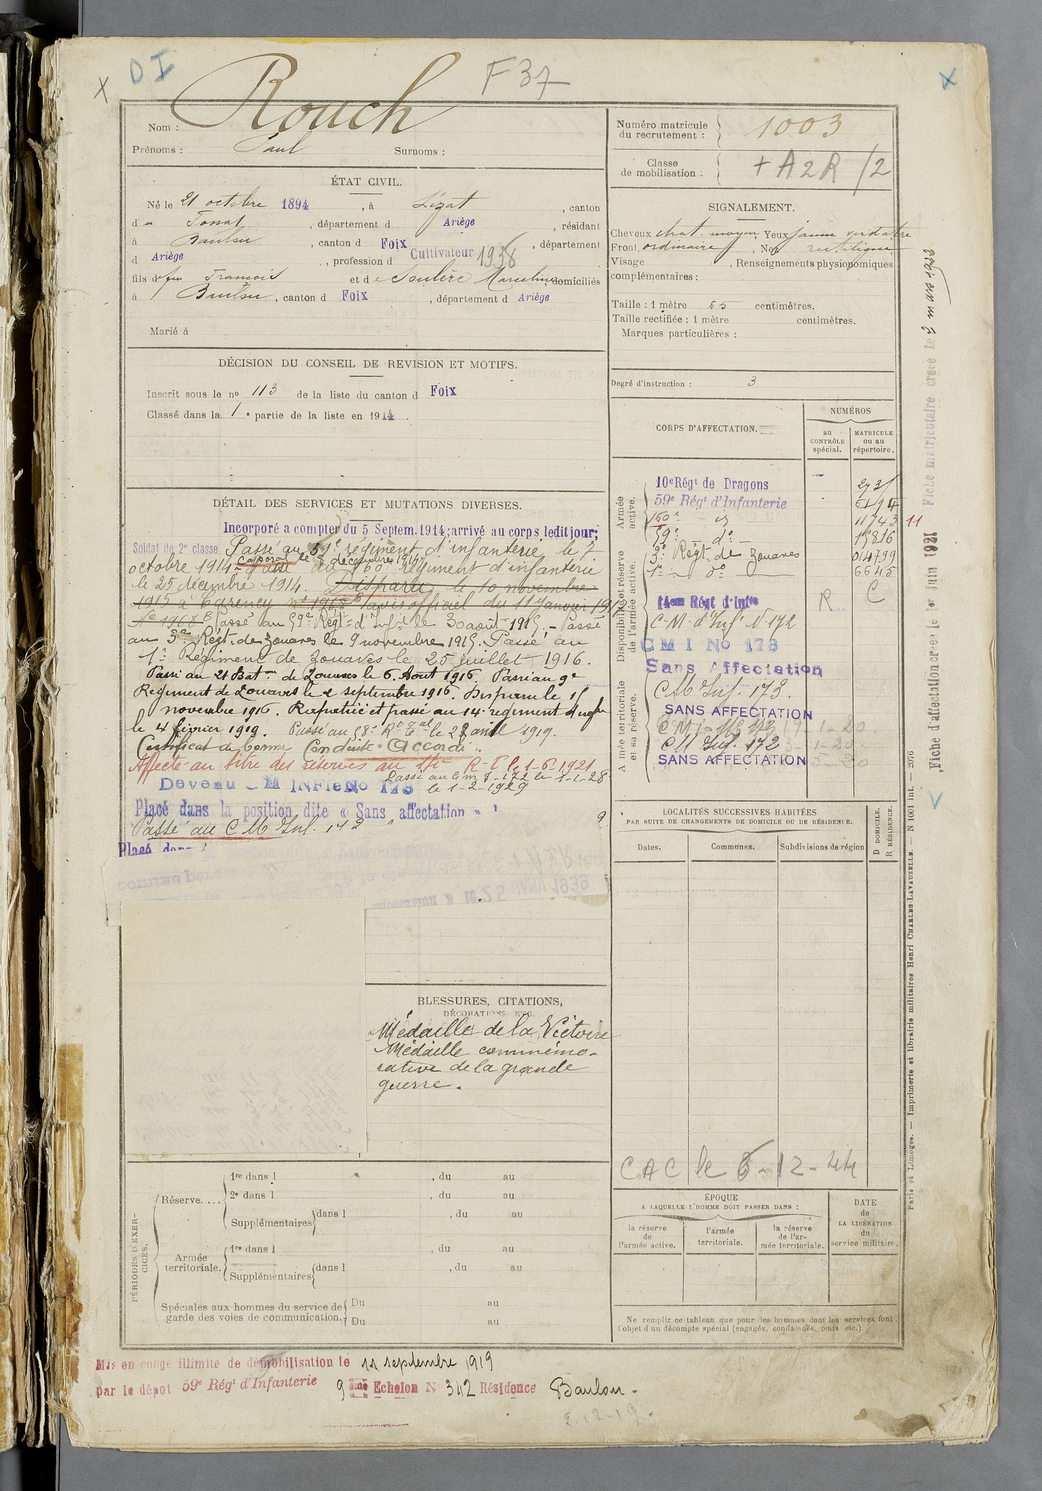 X
D I
F37
X
Nom : Rouch
Prénoms : Paul Surnoms :
Numéro matricule du recrutement : 1003
Classe de mobilisation : + A2R /2
ÉTAT CIVIL.
Né le 21 octobre 1894, à Lézat, canton
d , département d Ariège, résidant
à Baulou, canton d Foix, département
d Ariège, profession d Cultivateur 1938
fils d feu François et d domiciliés
à Baulou, canton d Foix, département d Ariège
Marié à
SIGNALEMENT.
Cheveux chat. moyen Yeux jaune verdâtre
Front ordinaire Nez rectiligne
Visage , Renseignements physionomiques
complémentaires :
Taille : 1 mètre 65 centimètres.
Taille rectifiée : 1 mètre centimètres.
Marques particulières :
Degré d'instruction : 3
DÉCISION DU CONSEIL DE REVISION ET MOTIFS.
Inscrit sous le nº 113 de la liste du canton d Foix
Classé dans la 1e partie de la liste en 1914
DÉTAIL DES SERVICES ET MUTATIONS DIVERSES.
Incorporé a compter du 5 Septem. 1914; arrivé au corps ledit jour;
Soldat de 2e classe Passé au 59e régiment d'infanterie le 7
Caporal le 5 décembre 1914
octobre 1914. Passé au 160e Régiment d'infanterie
le 25 décembre 1914. Disparu le 10 novembre
1915 à Carency officiel du 11 Janvier 1917
Nº 1968 Passé au 59e Régt d'Infie le 30 août 1915. Passé
au 3e Régt de Zouaves le 9 novembre 1915. Passé au
1er Régiment de Zouaves le 25 juillet 1916.
Passé au 21 Bat de Zouaves le 6 Aout 1916. Passé au 9e
Régiment de Zouaves le 2 septembre 1916. Disparu le 15
novembre 1916. Rapatrié et passé au 14e régiment d'infie
le 4 février 1919. Passé au 58e Rt Tal le 28 avril 1919.
Certificat de bonne Conduite "Accordé".
Affecté au titre des réserves au R.I. le 1-6-1921
Passé au C.M.I-172 le 1-1-28
Devenu C M INFIE No 173 le 1-2-1929
Placé dans la position dite « Sans affectation »
Passé au C M Inf. 172
Placé dans
JANV 1939
CORPS D'AFFECTATION.
NUMÉROS
au CONTRÔLE spécial.
MATRICULE ou au répertoire.
Armée active.
Disponibilité et réserve de l'armée active.
Armée territoriale et sa réserve.
10e Régt de Dragons
59e Régt d'Infanterie
160e 11743 11
59e dº 18816
3e Régt de Zouaves 014799
1er dº 6645
14em Régt d'Infie R C
C.M. d'Inf. Nº 172
C M I No 173
Sans Affectation
C M Inf. 173.
SANS AFFECTATION
C M Inf. 172
SANS AFFECTATION
LOCALITÉS SUCCESSIVES HABITÉES
PAR SUITE DE CHANGEMENTS DE DOMICILE OU DE RÉSIDENCE.
Dates. Communes. Subdivisions de région
D DOMICILE.
R RÉSIDENCE.
BLESSURES, CITATIONS,
DÉCORATIONS, ETC.
Médaille de la Victoire
Médaille commémo-
rative de la grande
guerre.
CAC le 6-12-44
PÉRIODES D'EXERCICES.
Réserve....
1re dans l , du au
2e dans l , du au
Supplémentaires dans l , du au
Armée territoriale.
1re dans l , du au
Supplémentaires dans l , du au
Spéciales aux hommes du service de garde des voies de communication.
Du au
Du au
ÉPOQUE
A LAQUELLE L'HOMME DOIT PASSER DANS :
la réserve de l'armée active.
l'armée territoriale.
la réserve de l'armée territoriale.
DATE de LA LIBÉRATION du service militaire.
Ne remplir ce tableau que pour les hommes dont les services font
l'objet d'un décompte spécial (engagés, condamnés, omis etc.).
Mis en congé illimité de démobilisation le 11 septembre 1919
par le dépôt 59e Régt d'Infanterie 9ème Echelon N 342 Résidence Baulou.
2-12-19.
Fiche d'affectation créée le 1er Juin 1921
Fiche matriculaire créée le
Paris et Limoges. — Imprimerie et librairie militaires Henri CHARLES-LAVAUZELLE. — N 1001 int.